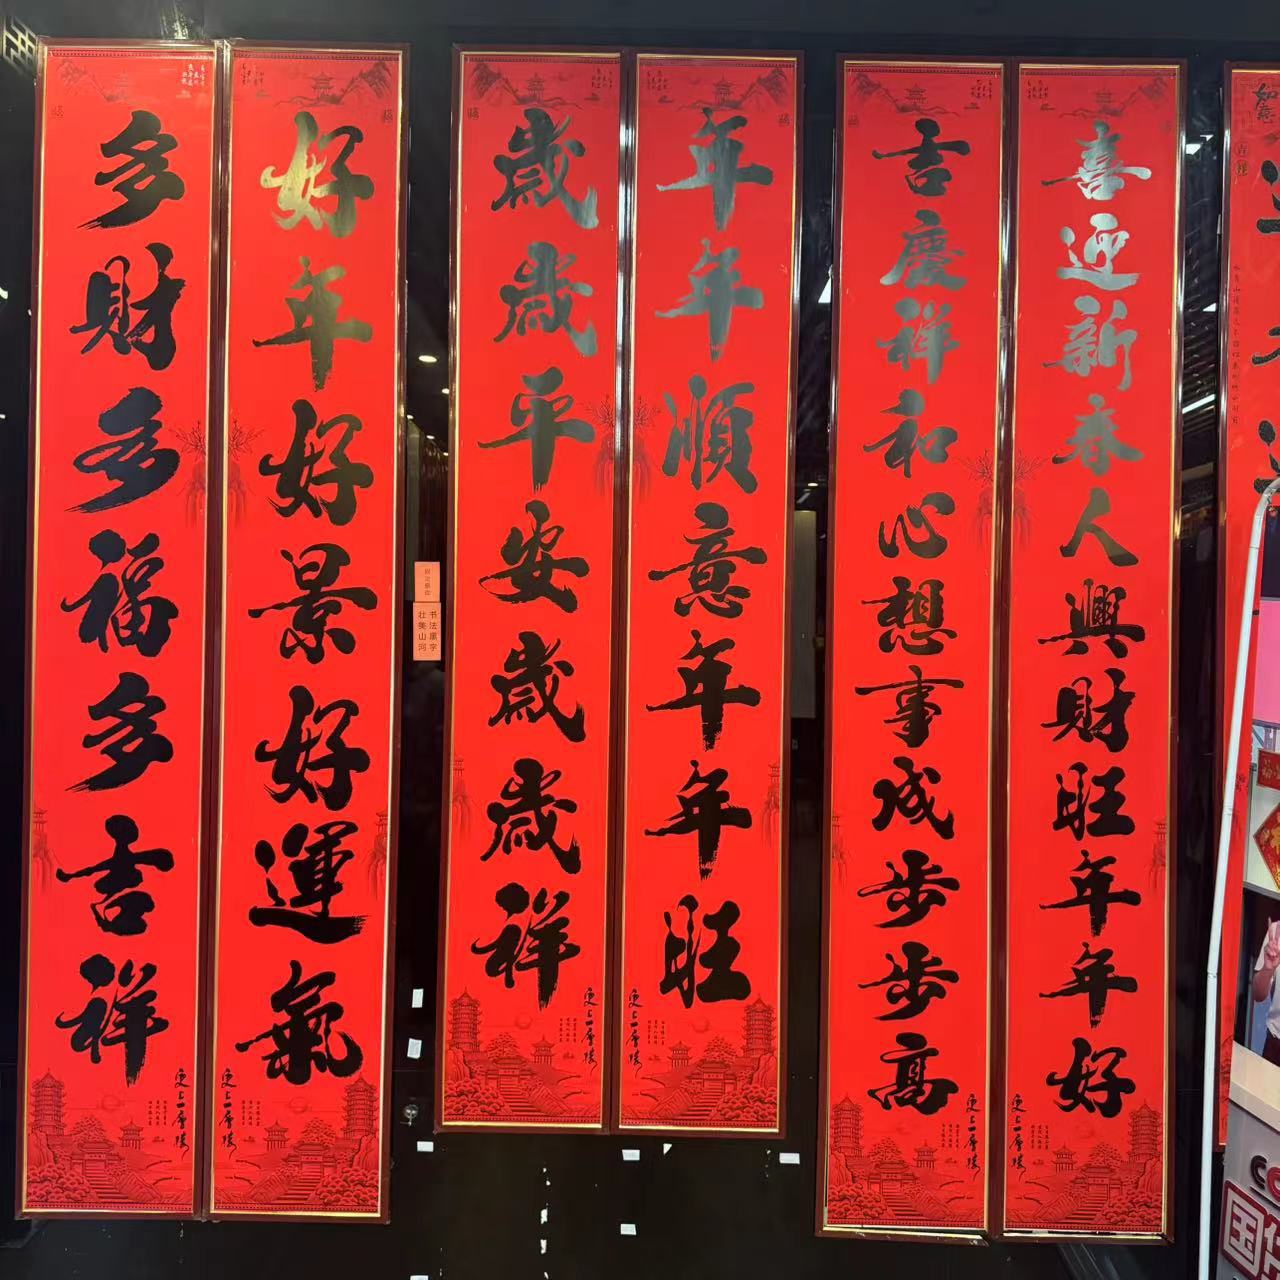 喜迎新春人興財旺年年好
吉慶祥和心想事成步步高
年年順意年年旺
歲歲平安歲歲祥
好年好景好運氣
多財多福多吉祥
更上一層樓
更上一層樓
更上一層樓
更上一層樓
更上一層樓
更上一層樓
书法黑字
壮美山河
如意
吉祥